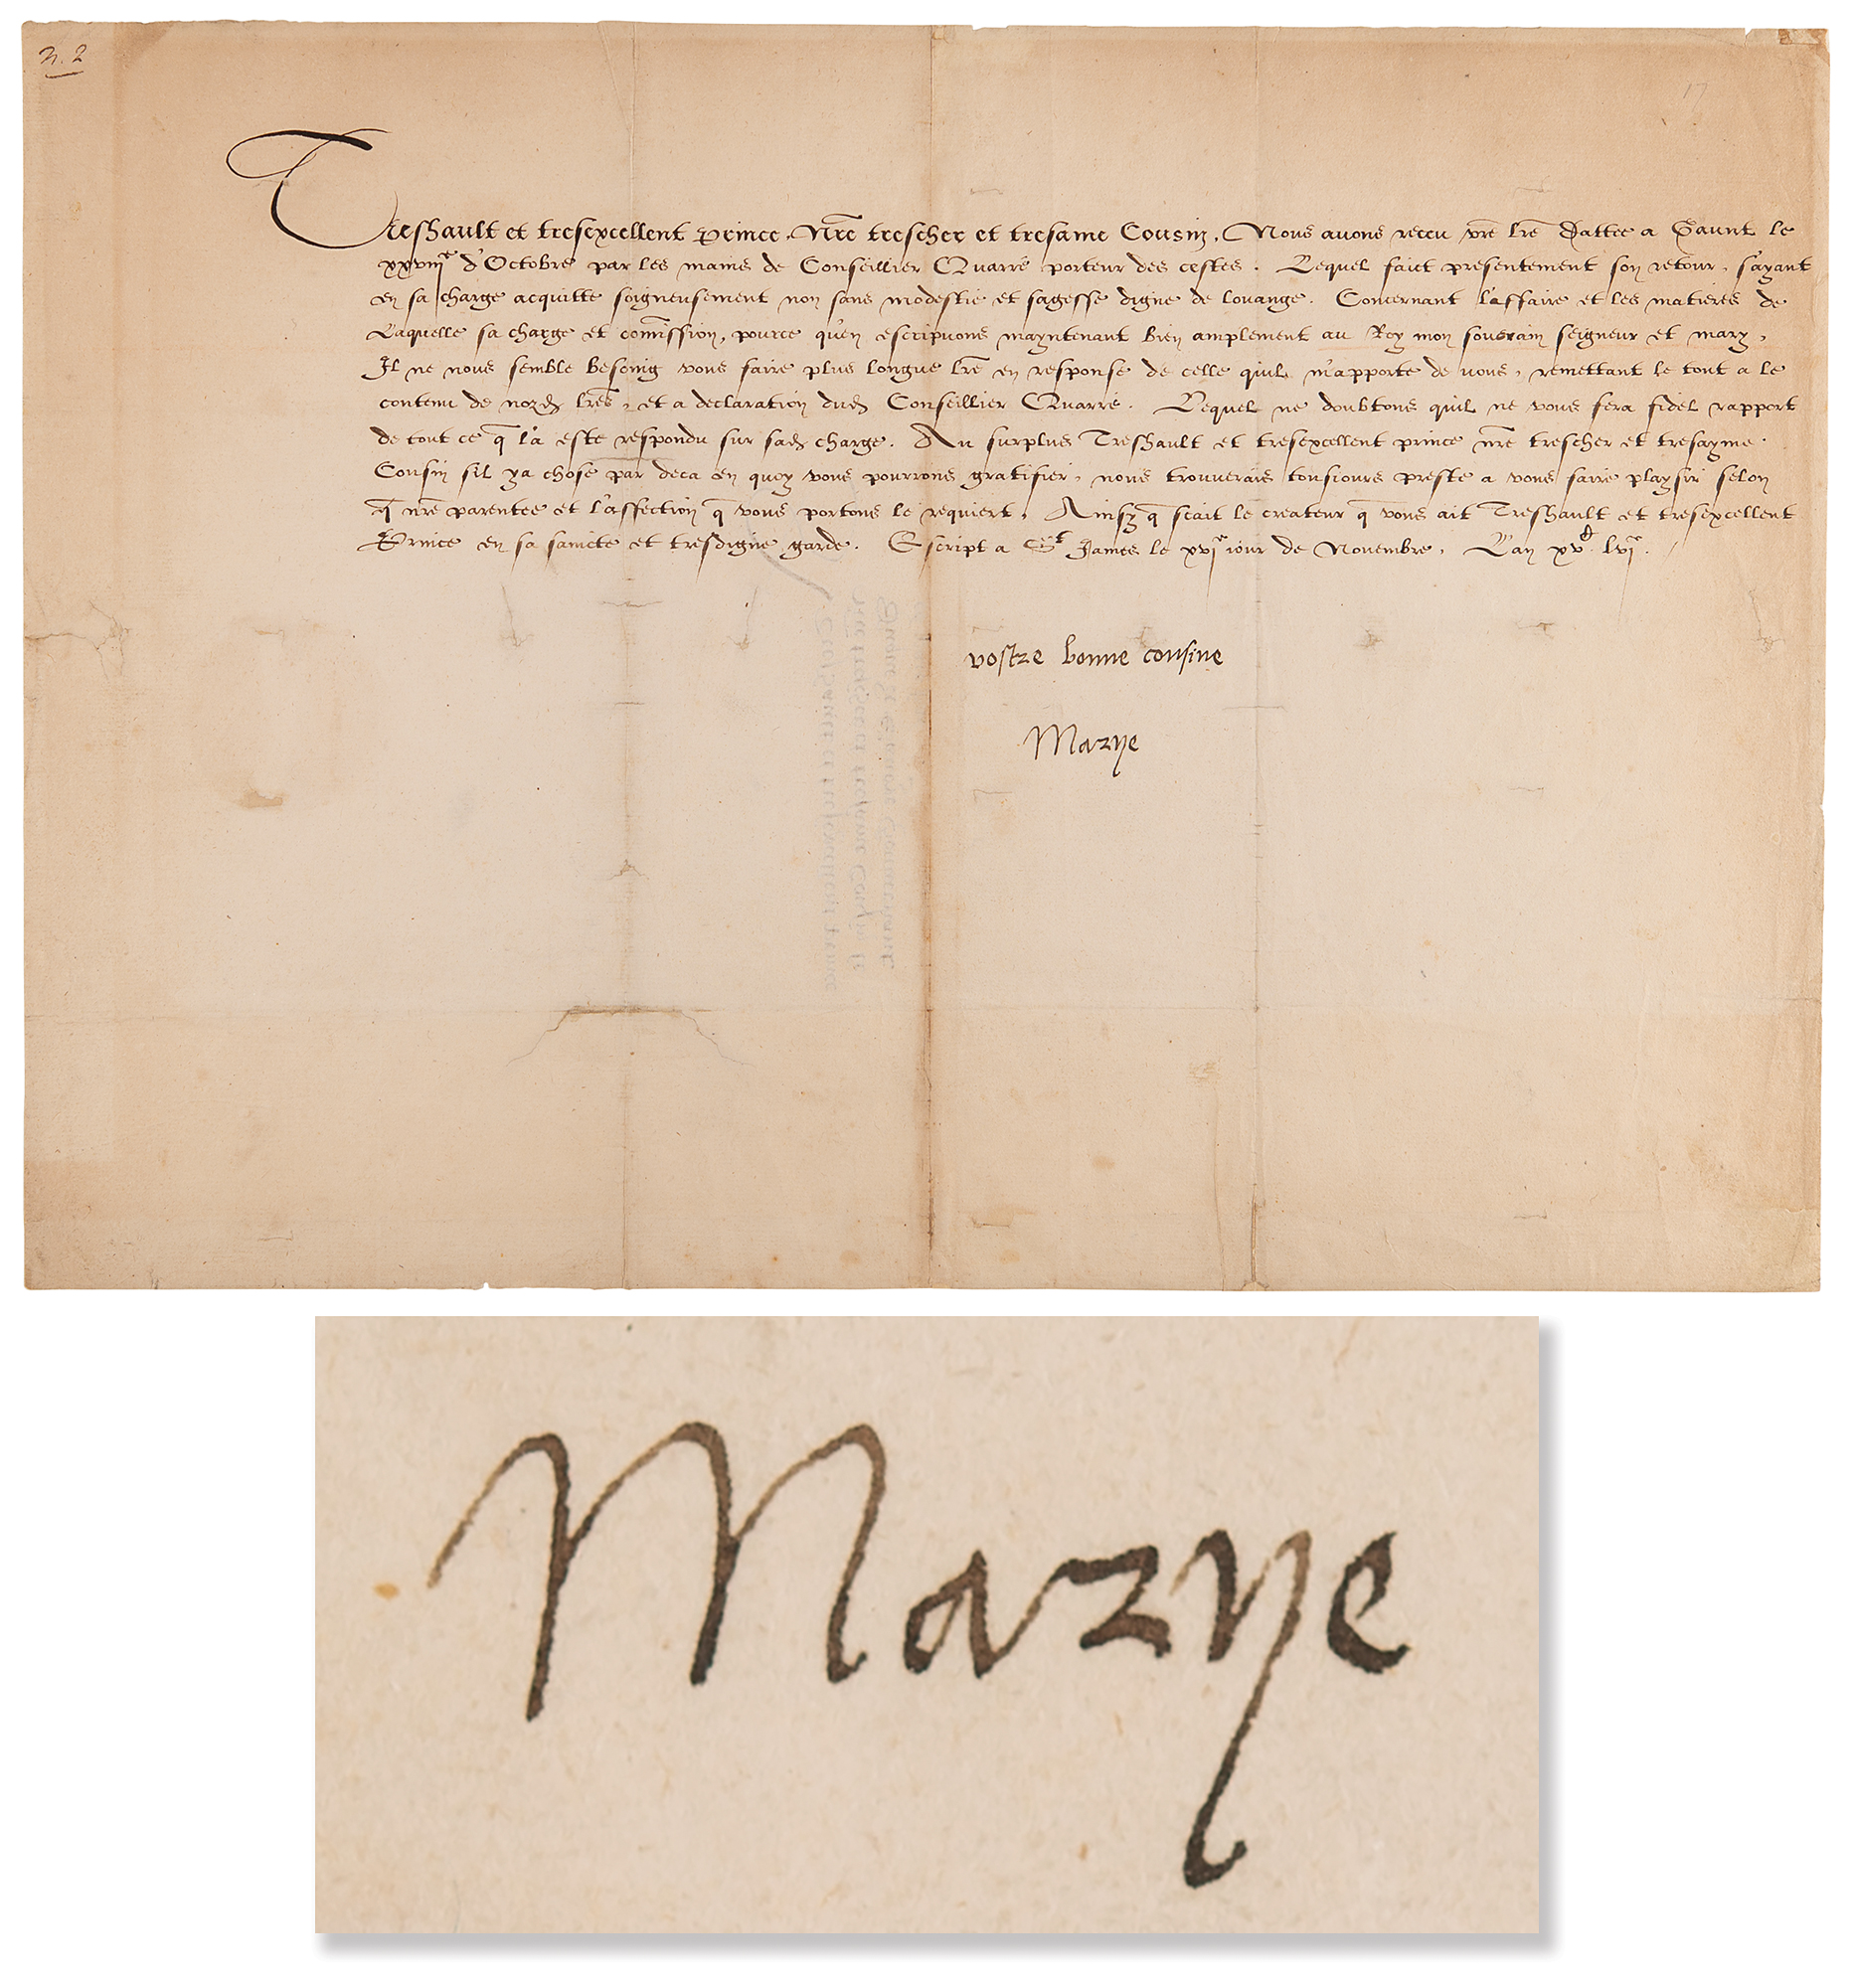 n. 2
17
Treshault et tresexcellent Prince, Nr̃e trescher et tresame Cousin, Nous avons receu vr̃e lr̃e dattee a Gaunt le
xxviiiᵉ d'Octobre par les mains de Conseillier Quarré porteur des cestes. Lequel faict presentement son retour, s'ayant
en sa charge acquitte soigneusement non sans modestie et sagesse digne de louange. Concernant l'affaire et les matieres de
Laquelle sa charge et com̃ission, pource qu'en escripuons mayntenant bien amplement au Roy mon souverain seigneur et mary,
Il ne nous semble besoing vous faire plus longue lr̃e en response de celle quil m'apporte de vous, remettant le tout a le
contenu de nozd lr̃es, et a declaration dud Conseillier Quarré. Lequel ne doubtons quil ne vous fera fidel rapport
de tout ce q̃ l'a este respondu sur sad charge. Au surplus Treshault et tresexcellent prince nr̃e trescher et tresayme
Cousin sil ya chose par deca en quoy vous pourrons gratifier, nous trouverais tousiours preste a vous faire playsir selon
q̃ nr̃e parentee et l'affection q̃ vous portons le requiert, Ainsy q̃ scait le createur q̃ vous ait Treshault et tresexcellent
Prince en sa saincte et tresdigne garde. Escript a Sᵗ James le xviᵉ iour de Novembre, L'an xvᶜ lvi.
vostre bonne cousine
Marye
Marye